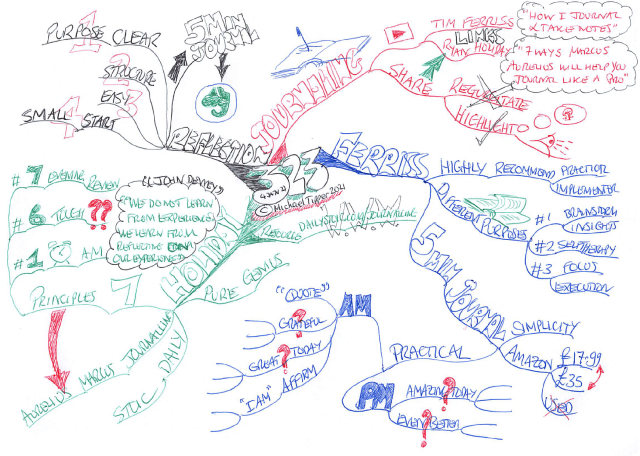 323
4 JAN 21
© Michael Tipper 2021
REFLECTION
PURPOSE
1
CLEAR
2
STRUCTURE
3
EASY
4
SMALL START
5 MIN
JOURNAL
JOURNALING
SHARE
TIM FERRISS
LINKS
RYAN HOLIDAY
"HOW I JOURNAL
& TAKE NOTES"
"7 WAYS MARCUS
AURELIUS WILL HELP YOU
JOURNAL LIKE A PRO"
HIGHLIGHT
FERRISS
HIGHLY RECOMMEND
PRACTICAL
IMPLEMENTER
DIFFERENT PURPOSES
#1 BRAINSTORM
INSIGHTS
#2 SELF THERAPY
#3 FOCUS
EXECUTION
5 MIN JOURNAL
SIMPLICITY
AMAZON
£17.99
£35
USED
PRACTICAL
AM
"QUOTE"
GRATEFUL
?
GREAT TODAY
?
"I AM" AFFIRM
PM
AMAZING TODAY
?
EVEN BETTER
?
HOLIDAY
RESOURCE
DAILYSTOIC.COM/JOURNALING
W.W.W.
PURE GENIUS
"JOHN DEWEY"
"WE DO NOT LEARN
FROM EXPERIENCE,
WE LEARN FROM
REFLECTING
OUR EXPERIENCE"
#7 EVENING REVIEW
#6
??
#1 AM
PRINCIPLES 7
MARCUS
AURELIUS
JOURNALLING
DAILY
STOIC